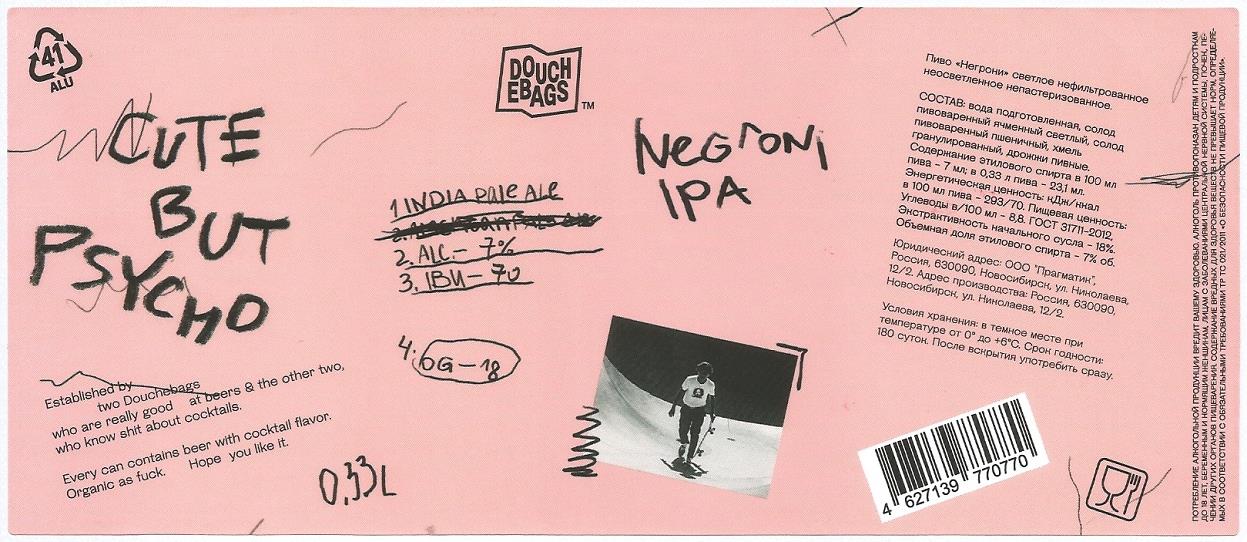 41
ALU
CUTE
BUT
PSYCHO
Established by
two Douchebags
who are really good at beers & the other two,
who know shit about cocktails.
Every can contains beer with cocktail flavor.
Organic as fuck. Hope you like it.
0,33L
DOUCH
EBAGS
TM
1 INDIA PALE ALE
2. ALC. – 7%
3. IBU – 70
4. OG – 18
NEGRONI
IPA
Пиво «Негрони» светлое нефильтрованное
неосветленное непастеризованное.
СОСТАВ: вода подготовленная, солод
пивоваренный ячменный светлый, солод
пивоваренный пшеничный, хмель
гранулированный, дрожжи пивные.
Содержание этилового спирта в 100 мл
пива – 7 мл; в 0,33 л пива – 23,1 мл.
Энергетическая ценность: кДж/ккал
в 100 мл пива – 293/70. Пищевая ценность:
Углеводы в/100 мл – 8,8. ГОСТ 31711-2012.
Экстрактивность начального сусла – 18%.
Объемная доля этилового спирта – 7% об.
Юридический адрес: ООО "Прагматик",
Россия, 630090, Новосибирск, ул. Николаева,
12/2. Адрес производства: Россия, 630090,
Новосибирск, ул. Николаева, 12/2.
Условия хранения: в темное месте при
температуре от 0° до +6°С. Срок годности:
180 суток. После вскрытия употребить сразу.
4 627139 770770
ПОТРЕБЛЕНИЕ АЛКОГОЛЬНОЙ ПРОДУКЦИИ ВРЕДИТ ВАШЕМУ ЗДОРОВЬЮ. АЛКОГОЛЬ ПРОТИВОПОКАЗАН ДЕТЯМ И ПОДРОСТКАМ
ДО 18 ЛЕТ, БЕРЕМЕННЫМ И КОРМЯЩИМ ЖЕНЩИНАМ, ЛИЦАМ С ЗАБОЛЕВАНИЯМИ ЦЕНТРАЛЬНОЙ НЕРВНОЙ СИСТЕМЫ, ПОЧЕК, ПЕ-
ЧЕНИ ДРУГИХ ОРГАНОВ ПИЩЕВАРЕНИЯ. СОДЕРЖАНИЕ ВРЕДНЫХ ДЛЯ ЗДОРОВЬЯ ВЕЩЕСТВ НЕ ПРЕВЫШАЕТ НОРМ, ОПРЕДЕЛЯЕ-
МЫХ В СООТВЕТСТВИИ С ОБЯЗАТЕЛЬНЫМИ ТРЕБОВАНИЯМИ ТР ТС 021/2011 «О БЕЗОПАСНОСТИ ПИЩЕВОЙ ПРОДУКЦИИ».